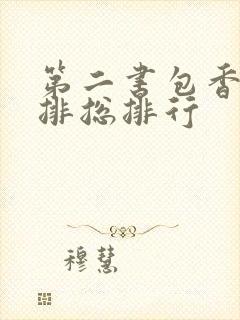 第二书包香
排总排行
穆慧